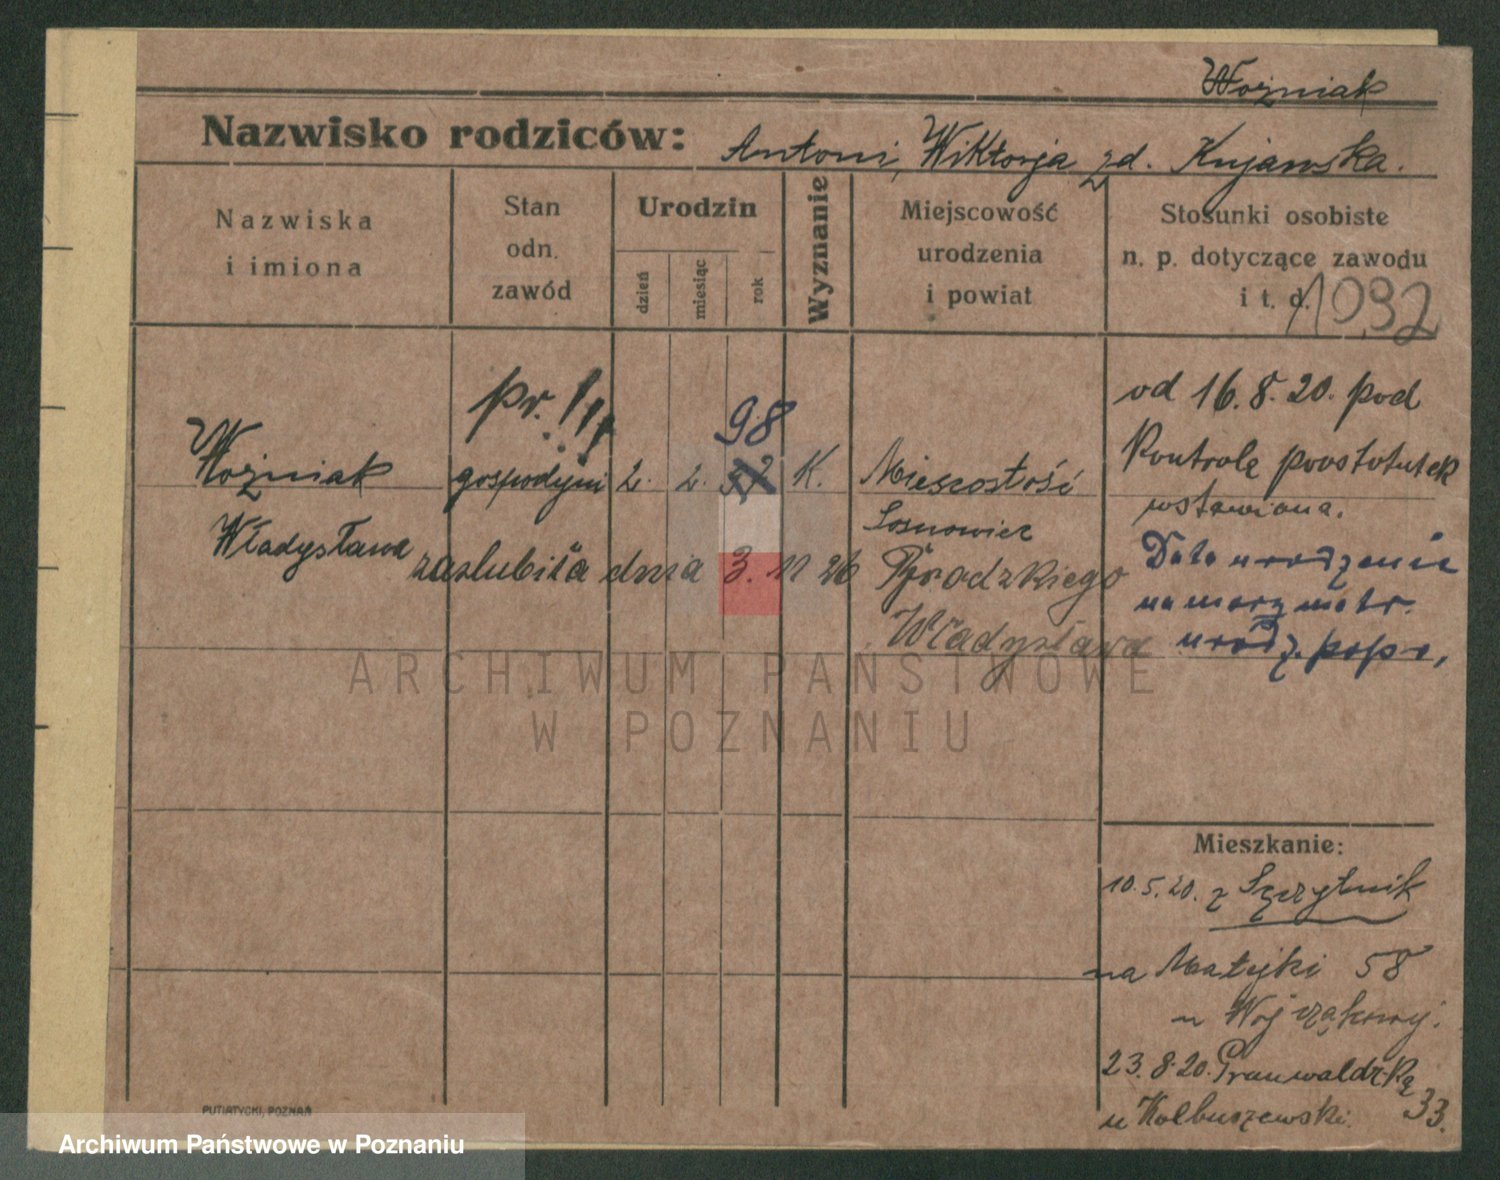 Woźniak
Nazwisko rodziców: Antoni, Wiktorja zd. Kujawska.
Nazwiska i imiona
Stan odn. zawód
Urodzin
dzień
miesiąc
rok
Wyznanie
Miejscowość urodzenia i powiat
Stosunki osobiste n. p. dotyczące zawodu i t. d.
1092
pr. !!!
98
od 16.8.20. pod
Kontrolą prostytutek
wstawiona.
Woźniak
gospodyni 2. 2. K.
Mieszostość
Sosnowiec
Władysława
zaslubiła dnia 3. 11 26
Brodzkiego
Władysława
Data urodzenia
na
urodz. popr.
ARCHIWUM PAŃSTWOWE
W POZNANIU
Mieszkanie:
10.5.20. z Szczytnik
na Matejki 58
u Wojczakowej.
23.8.20. Grunwaldzką
33.
u Kolbuszewski.
PUTIATYCKI, POZNAŃ
Archiwum Państwowe w Poznaniu